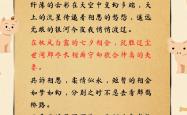 纤薄的云彩在天空中变幻多端，天
上的流星传递着相思的愁怨，遥远
无垠的银河今夜我悄悄渡过。
在秋风白露的七夕相会，就胜过尘
世间那些长相厮守却貌合神离的夫
妻。
共诉相思，柔情似水，短暂的相会
如梦如幻，分别之时不忍去看那鹊
桥路。